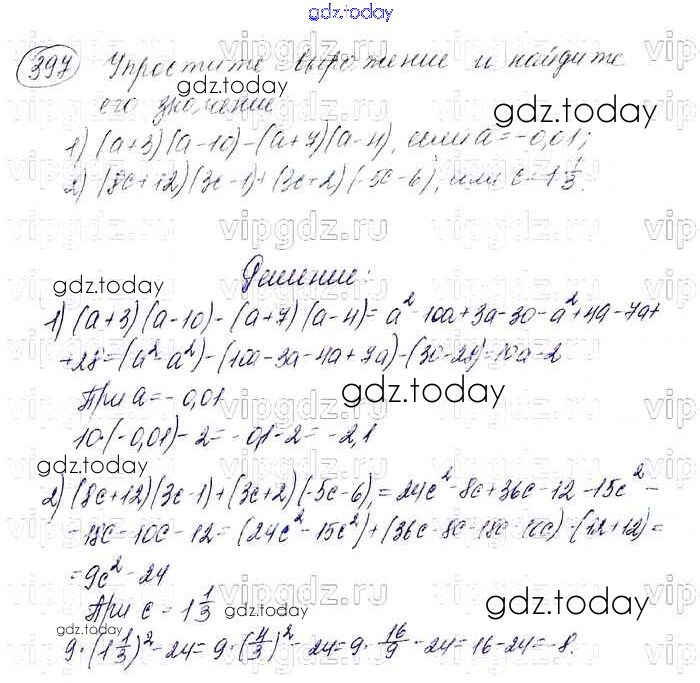 gdz.today
397 Упростите выражение и найдите
его значение
1) (a+3)(a-10)-(a+7)(a-4), если a=-0,01;
2) (8c+12)(3c-1)+(3c+2)(-5c-6), если c=1 1/3.
Решение:
1) (a+3)(a-10)-(a+7)(a-4)=a²-10a+3a-30-a²+4a-7a+
+28=(a²-a²)-(10a-3a-4a+7a)-(30-28)=10a-2
При a=-0,01
10·(-0,01)-2=-0,1-2=-2,1
2) (8c+12)(3c-1)+(3c+2)(-5c-6)=24c²-8c+36c-12-15c²-
-18c-10c-12=(24c²-15c²)+(36c-8c-18c-10c)-(12+12)=
=9c²-24
При c=1 1/3
9·(1 1/3)²-24=9·(4/3)²-24=9·16/9-24=16-24=-8.